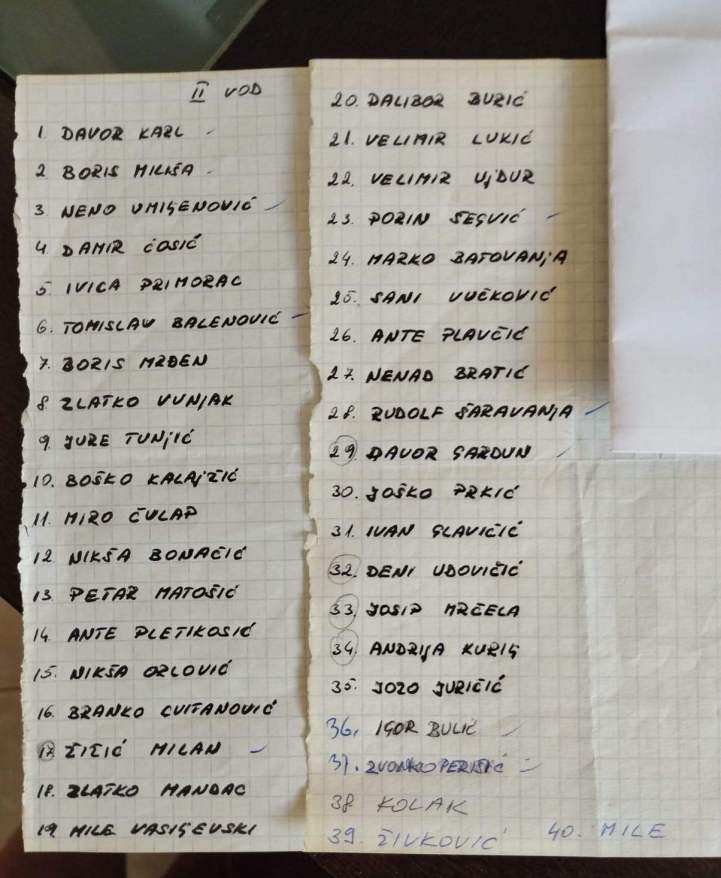 II VOD
1 DAVOR KARL
2 BORIS MILIŠA
3 NENO UMIGENOVIĆ
4 DAMIR ĆOSIĆ
5 IVICA PRIMORAC
6. TOMISLAV BALENOVIĆ
7. BORIS MRĐEN
8 ZLATKO VUNJAK
9. JURE TUNJIĆ
10. BOŠKO KALAJŽIĆ
11. MIRO ČULAP
12 NIKŠA BONAČIĆ
13 PETAR MATOŠIĆ
14 ANTE PLETIKOSIĆ
15. NIKŠA ORLOVIĆ
16. BRANKO CVITANOVIĆ
17 ŽIŽIĆ MILAN
18. ZLATKO MANDAC
19. MILE VASIGEVSKI
20. DALIBOR BURIĆ
21. VELIMIR LUKIĆ
22. VELIMIR UJDUR
23. PORIN ŠEGVIĆ
24. MARKO BATOVANJA
25. SANI VUČKOVIĆ
26. ANTE PLAVČIĆ
27. NENAD BRATIĆ
28. RUDOLF ŠARAVANJA
29 DAVOR GARDUN
30. JOŠKO PRKIĆ
31. IVAN GLAVIČIĆ
32. DENI UDOVIČIĆ
33. JOSIP MRČELA
34. ANDRIJA KURIG
35. JOZO JURIČIĆ
36. IGOR BULIĆ
37. ZVONKO PERIŠIĆ
38 KOLAK
39. ŽIVKOVIĆ 40. MILE